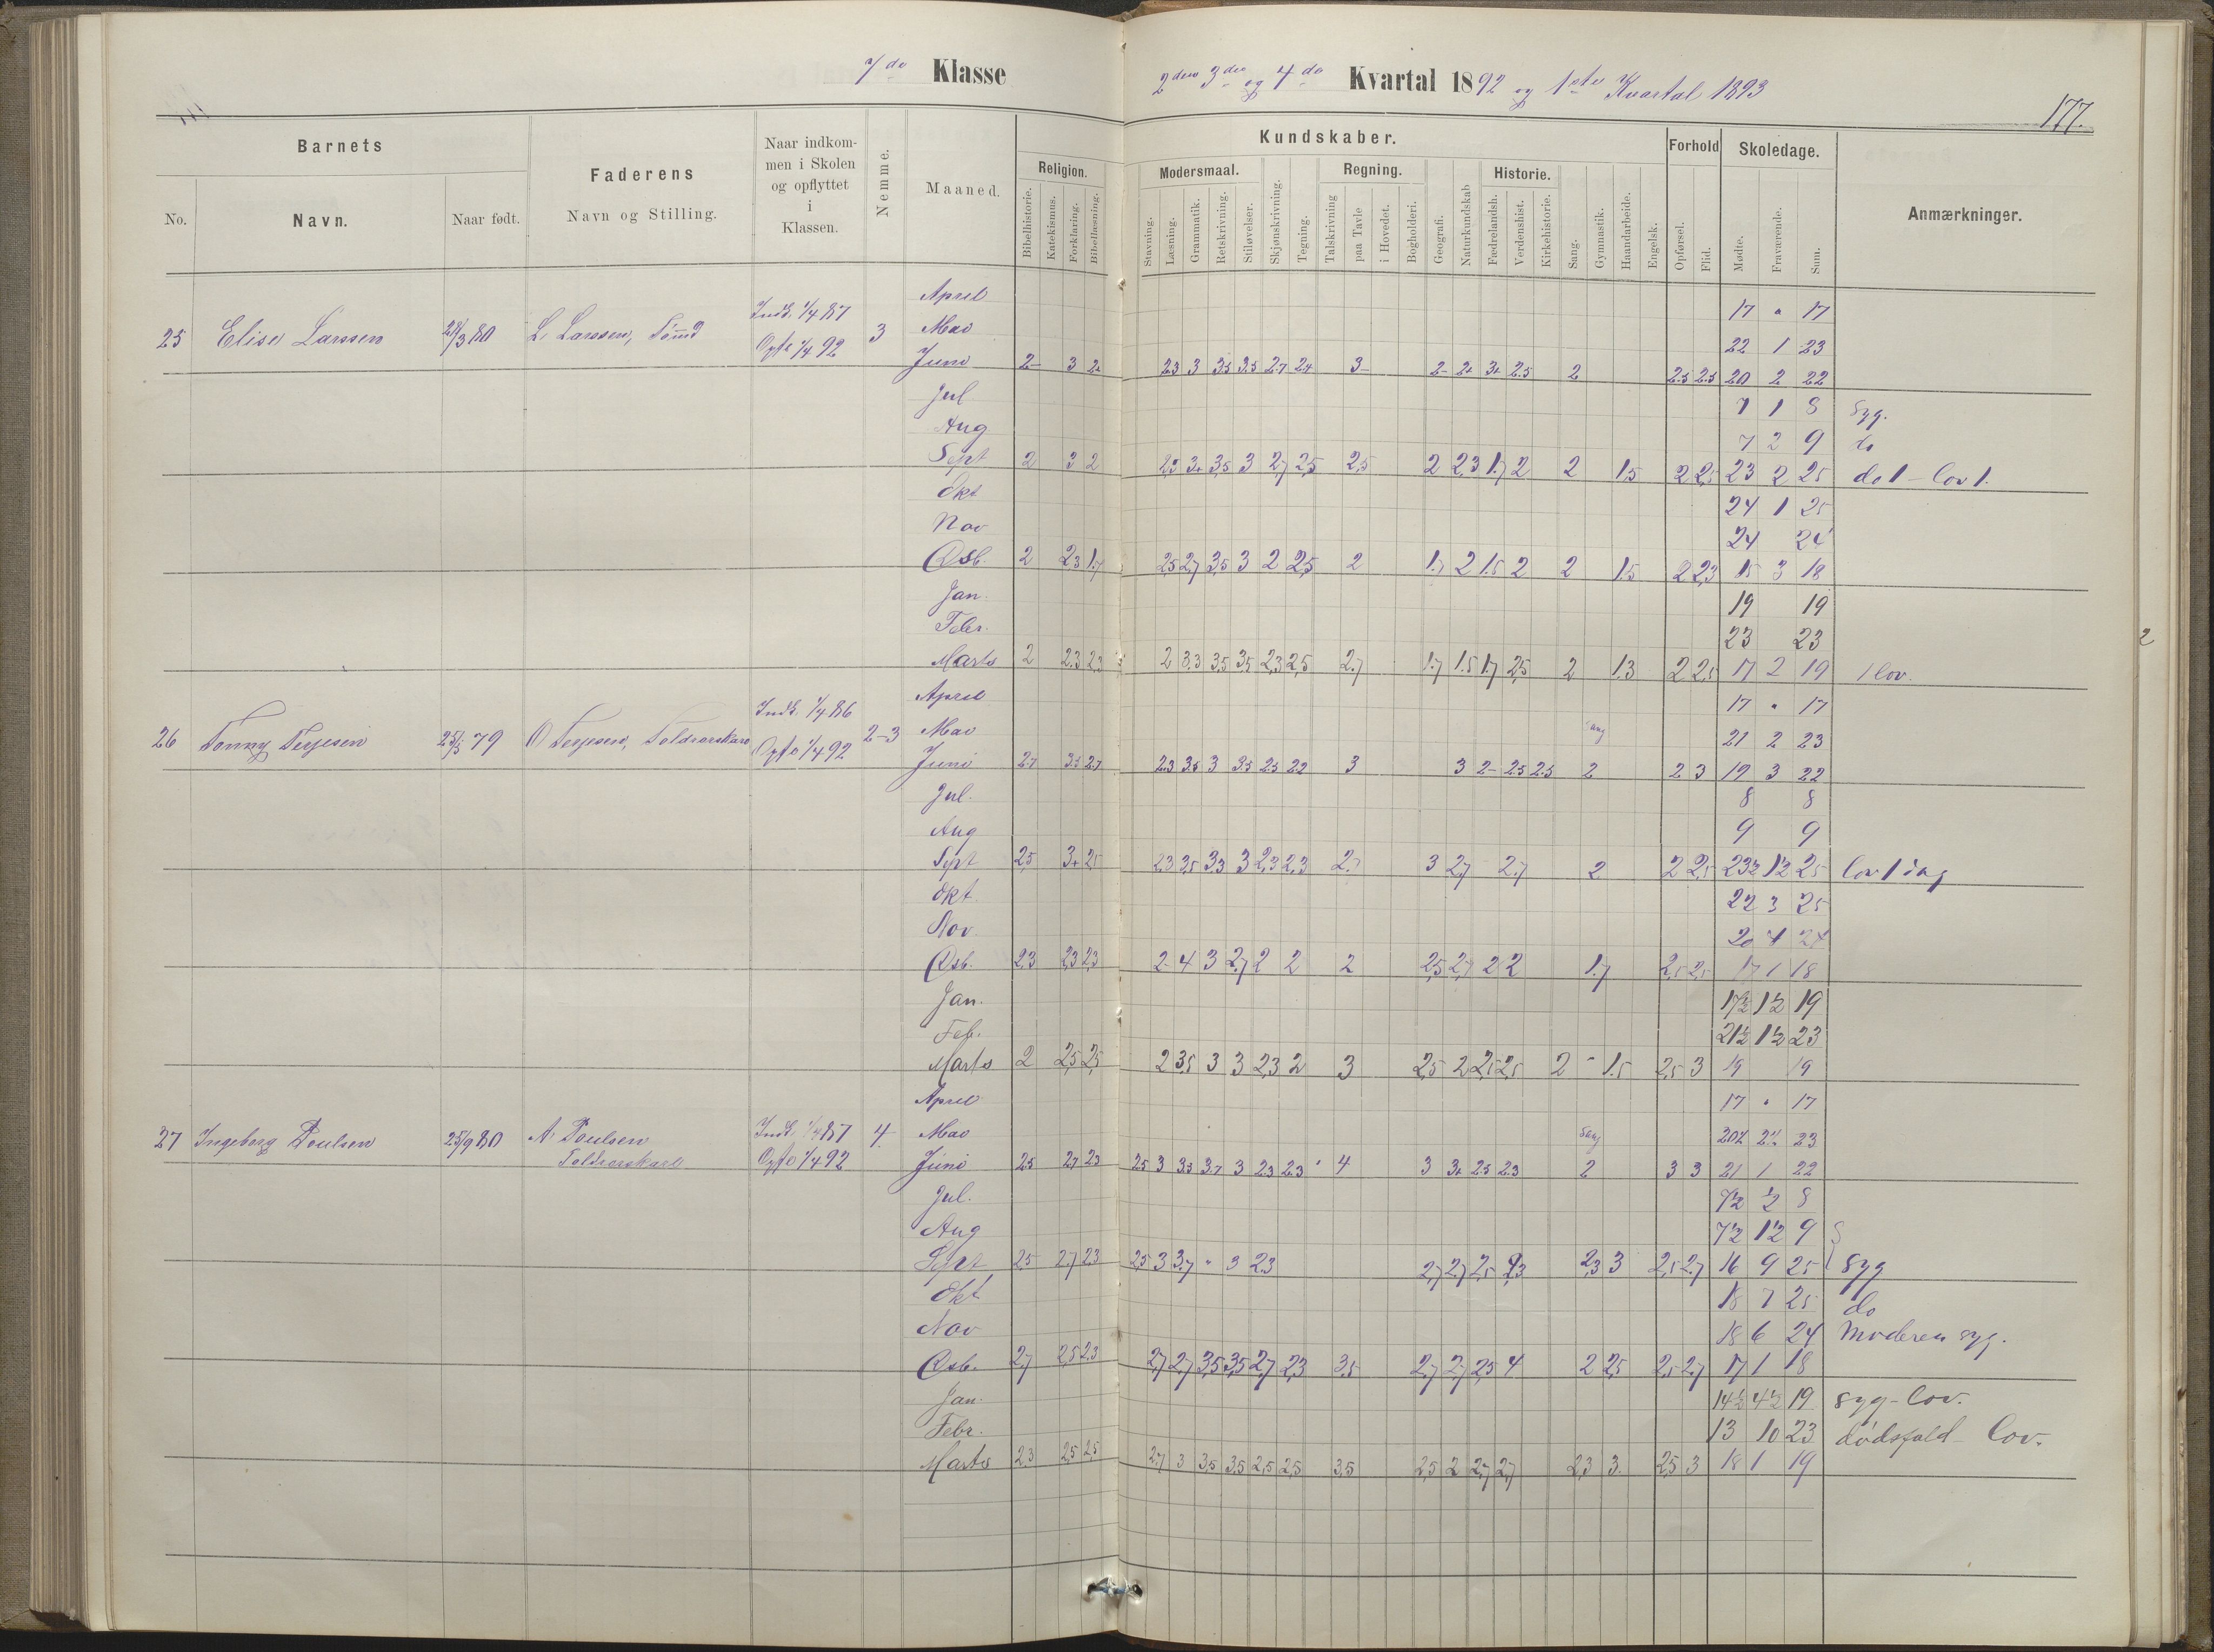 7de Klasse
2den 3die og 4de Kvartal 1892 og 1ste Kvartal 1893
177.
Barnets
Faderens
Naar indkommen i Skolen og opflyttet i Klassen.
Nemme.
Maaned.
Kundskaber.
Forhold
Skoledage.
Anmærkninger.
No.
Navn.
Naar født.
Navn og Stilling.
Religion.
Bibelhistorie.
Katekismus.
Forklaring.
Bibellæsning.
Modersmaal.
Stavning.
Læsning.
Grammatik.
Retskrivning.
Stiløvelser.
Skjønskrivning.
Tegning.
Regning.
Talskrivning
paa Tavle
i Hovedet.
Bogholderi.
Geografi.
Naturkundskab
Historie.
Fædrelandsh.
Verdenshist.
Kirkehistorie.
Sang.
Gymnastik.
Haandarbeide.
Engelsk.
Opførsel.
Flid.
Mødte.
Fraværende.
Sum.
April 17 " 17
25 Elise Larssen 28/3 80 L. Larssen, Indk. 1/4 87 Opfl 1/4 92 3
Mai 22 1 23
Juni 2- 3 2+ 2.3 3 3.5 3.5 2.7 2.4 3- 2- 2+ 3+ 2.5 2 2.5 2.5 20 2 22
Jul 7 1 8 Syg.
Aug 7 2 9 do
Sept 2 3 2 2,3 3+ 3,5 3 2,7 2,5 2,5 2 2,3 1.7 2 2 1.5 2 2,5 23 2 25 do 1 - lov 1.
Okt 24 1 25
Nov 24 24
Dsb. 2 2,3 1.7 2,5 2,7 3,5 3 2 2,5 2 1.7 2 1.5 2 2 1.5 2 2,3 15 3 18
Jan. 19 19
Febr. 23 23
Marts 2 2.3 2,3 2 3,3 3,5 3,5 2,3 2,5 2.7 1.7 1.5 1.7 2,5 2 1.3 2 2,5 17 2 19 1 lov.
April 17 " 17
26 Tonny Terjesen 25/5 79 O Terjesen, Toldrorskarl Indk. 1/4 86 Opfl 1/4 92 2-3
Mai 21 2 23
Juni 2.7 3.5 2.7 2.3 3.5 3 3.5 2.5 2.2 3 3 2- 2.5 2.5 2 2 3 19 3 22
Jul. 8 8
Aug 9 9
Sept 2,5 3+ 2,5 2,3 3,5 3,3 3 2,3 2,3 2.7 3 2,7 2.7 2 2 2,5 23½ 1½ 25 lov 1 dag
Okt 22 3 25
Nov. 20 4 24
Dsb. 2,3 2,3 2,3 2- 4 3 2,7 2 2 2 2,5 2,7 2 2 1.7 2,5 2,5 17 1 18
Jan. 17½ 1½ 19
Feb. 21½ 1½ 23
Marts 2 2,5 2,5 2 3,5 3 3 2,3 2 3 2,5 2 2,5 2,5 2 - 1.5 2,5 3 19 19
April 17 " 17
27 Ingeborg Poulsen 25/9 80 A. Poulsen Toldrorskarl Indk. 1/4 87 Opfl 1/4 92 4.
Mai Sang 20½ 2½ 23
Juni 2.5 2.7 2.3 2.5 3 3.5 3.7 3 2.3 2.3 " 4 3 3+ 2.5 2.3 2 3 3 21 1 22
Jul. 7½ ½ 8
Aug 7½ 1½ 9
Sept 2,5 2.7 2,3 2,5 3 3.7 " 3 2,3 2,7 2,7 2,5 2,3 2,3 3 2,5 2.7 16 9 25 Syg
Okt 18 7 25 do
Nov 18 6 24 Moderen syg.
Dsb. 2,7 2,5 2,3 2,7 2,7 3,5 3,5 2,7 2,3 3,5 2,7 2,7 2,5 4 2 2,5 2,5 2,7 17 1 18
Jan. 14½ 4½ 19 syg - lov.
Febr. 13 10 23 dødsfald - lov.
Marts 2,3 2,5 2,5 2,7 3 3,5 3,5 2,5 2,5 3,5 2,5 2 2,7 2,7 2,3 3. 2,5 3 18 1 19
2